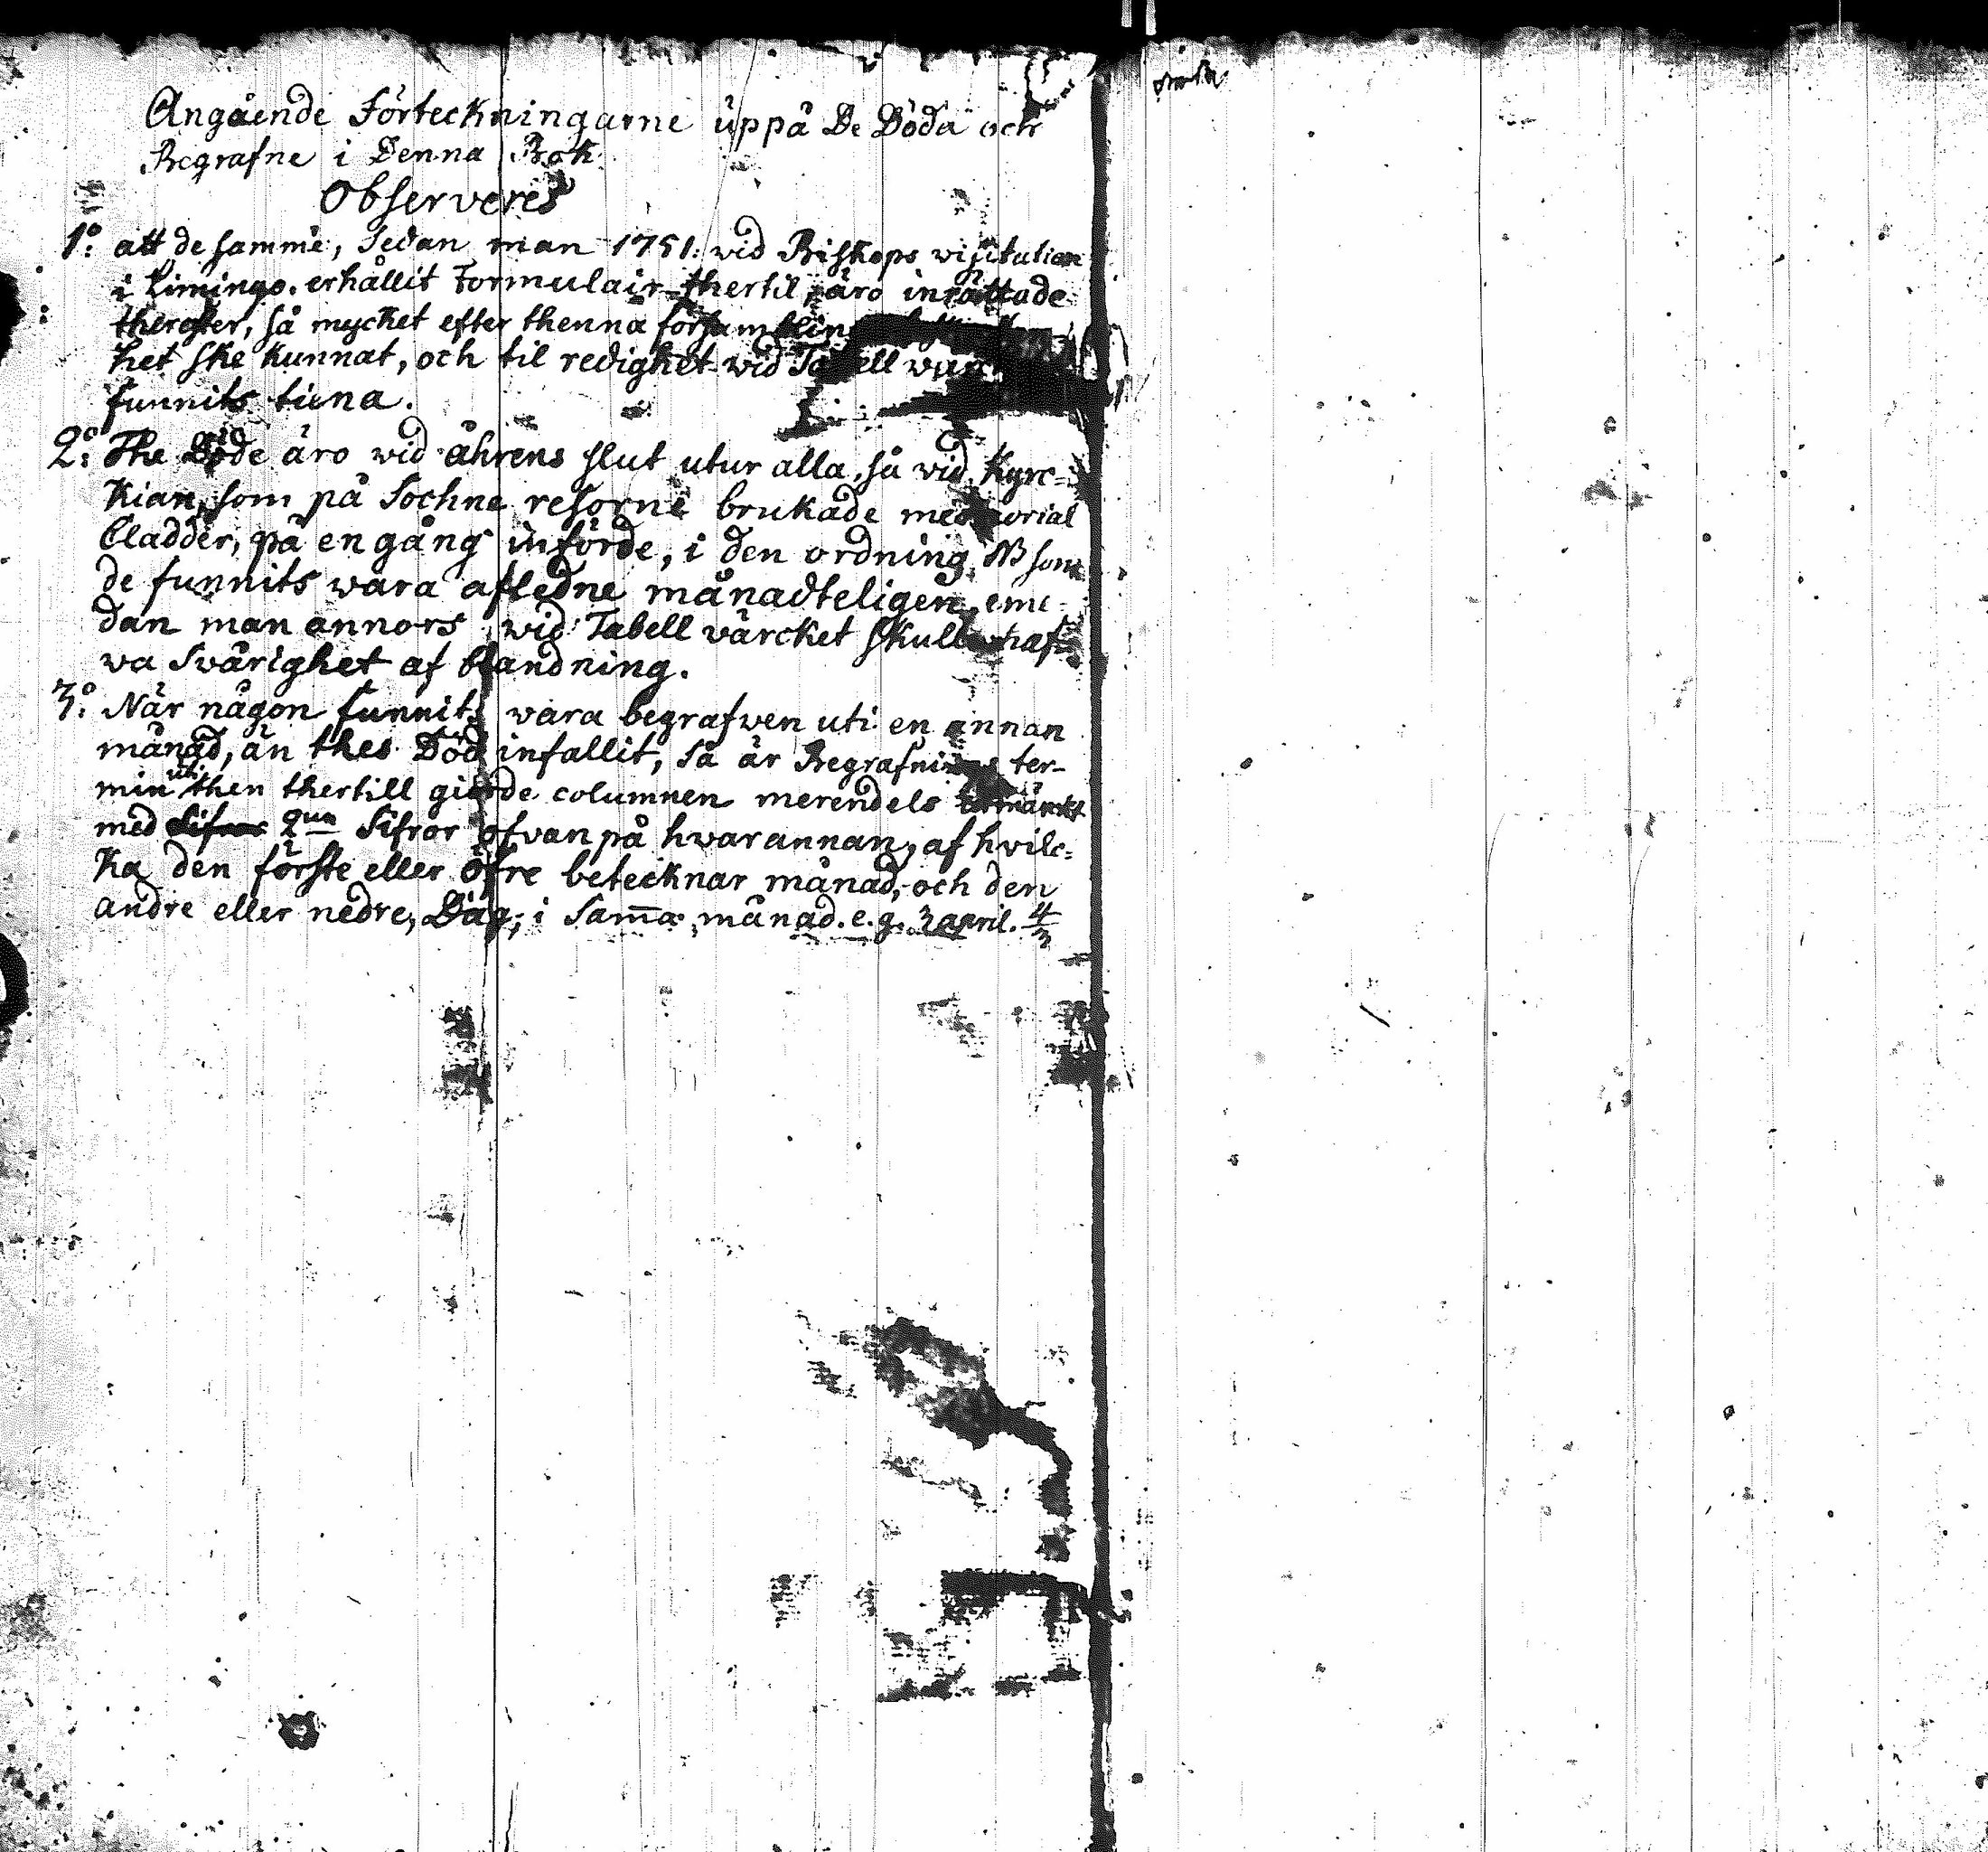 Angående Förteckningarne uppå De Döda och
Begrafne i Denna Bok
Observeres
1:o att de samme, Sedan man 1751. wid Biskops visitation
i Limingo. erhållit Formulair thertil, äro inrättade
therefter, så mycket efter thenna församling
het ske kunnat, och til redighet wid Tabell
funnits tiena.
2:o The Döde äro wid åhrens slut utur alla, så wid Kyrc=
kian, som på Sochne resorne brukade memorial
Cladder, på en gång införde, i den ordning, NB som
de funnits wara afledne månadteligen, eme=
dan man annors wid Tabell värcket skulle haf=
va Svårighet af blandning.
3:o När någon funnits vara begrafven uti en annan
månad, än thes Död infallit, så är Begrafnings ter-
min uti then thertill giorde columnen merendels utmärckt
med Sifror 2ua Sifror ofvan på hvarannan, af hvilc=
ka den förste eller öfre betecknar månad, och den
andre eller nedre, Dag, i Sam̅a månad. e.g. 3 april. 4/3